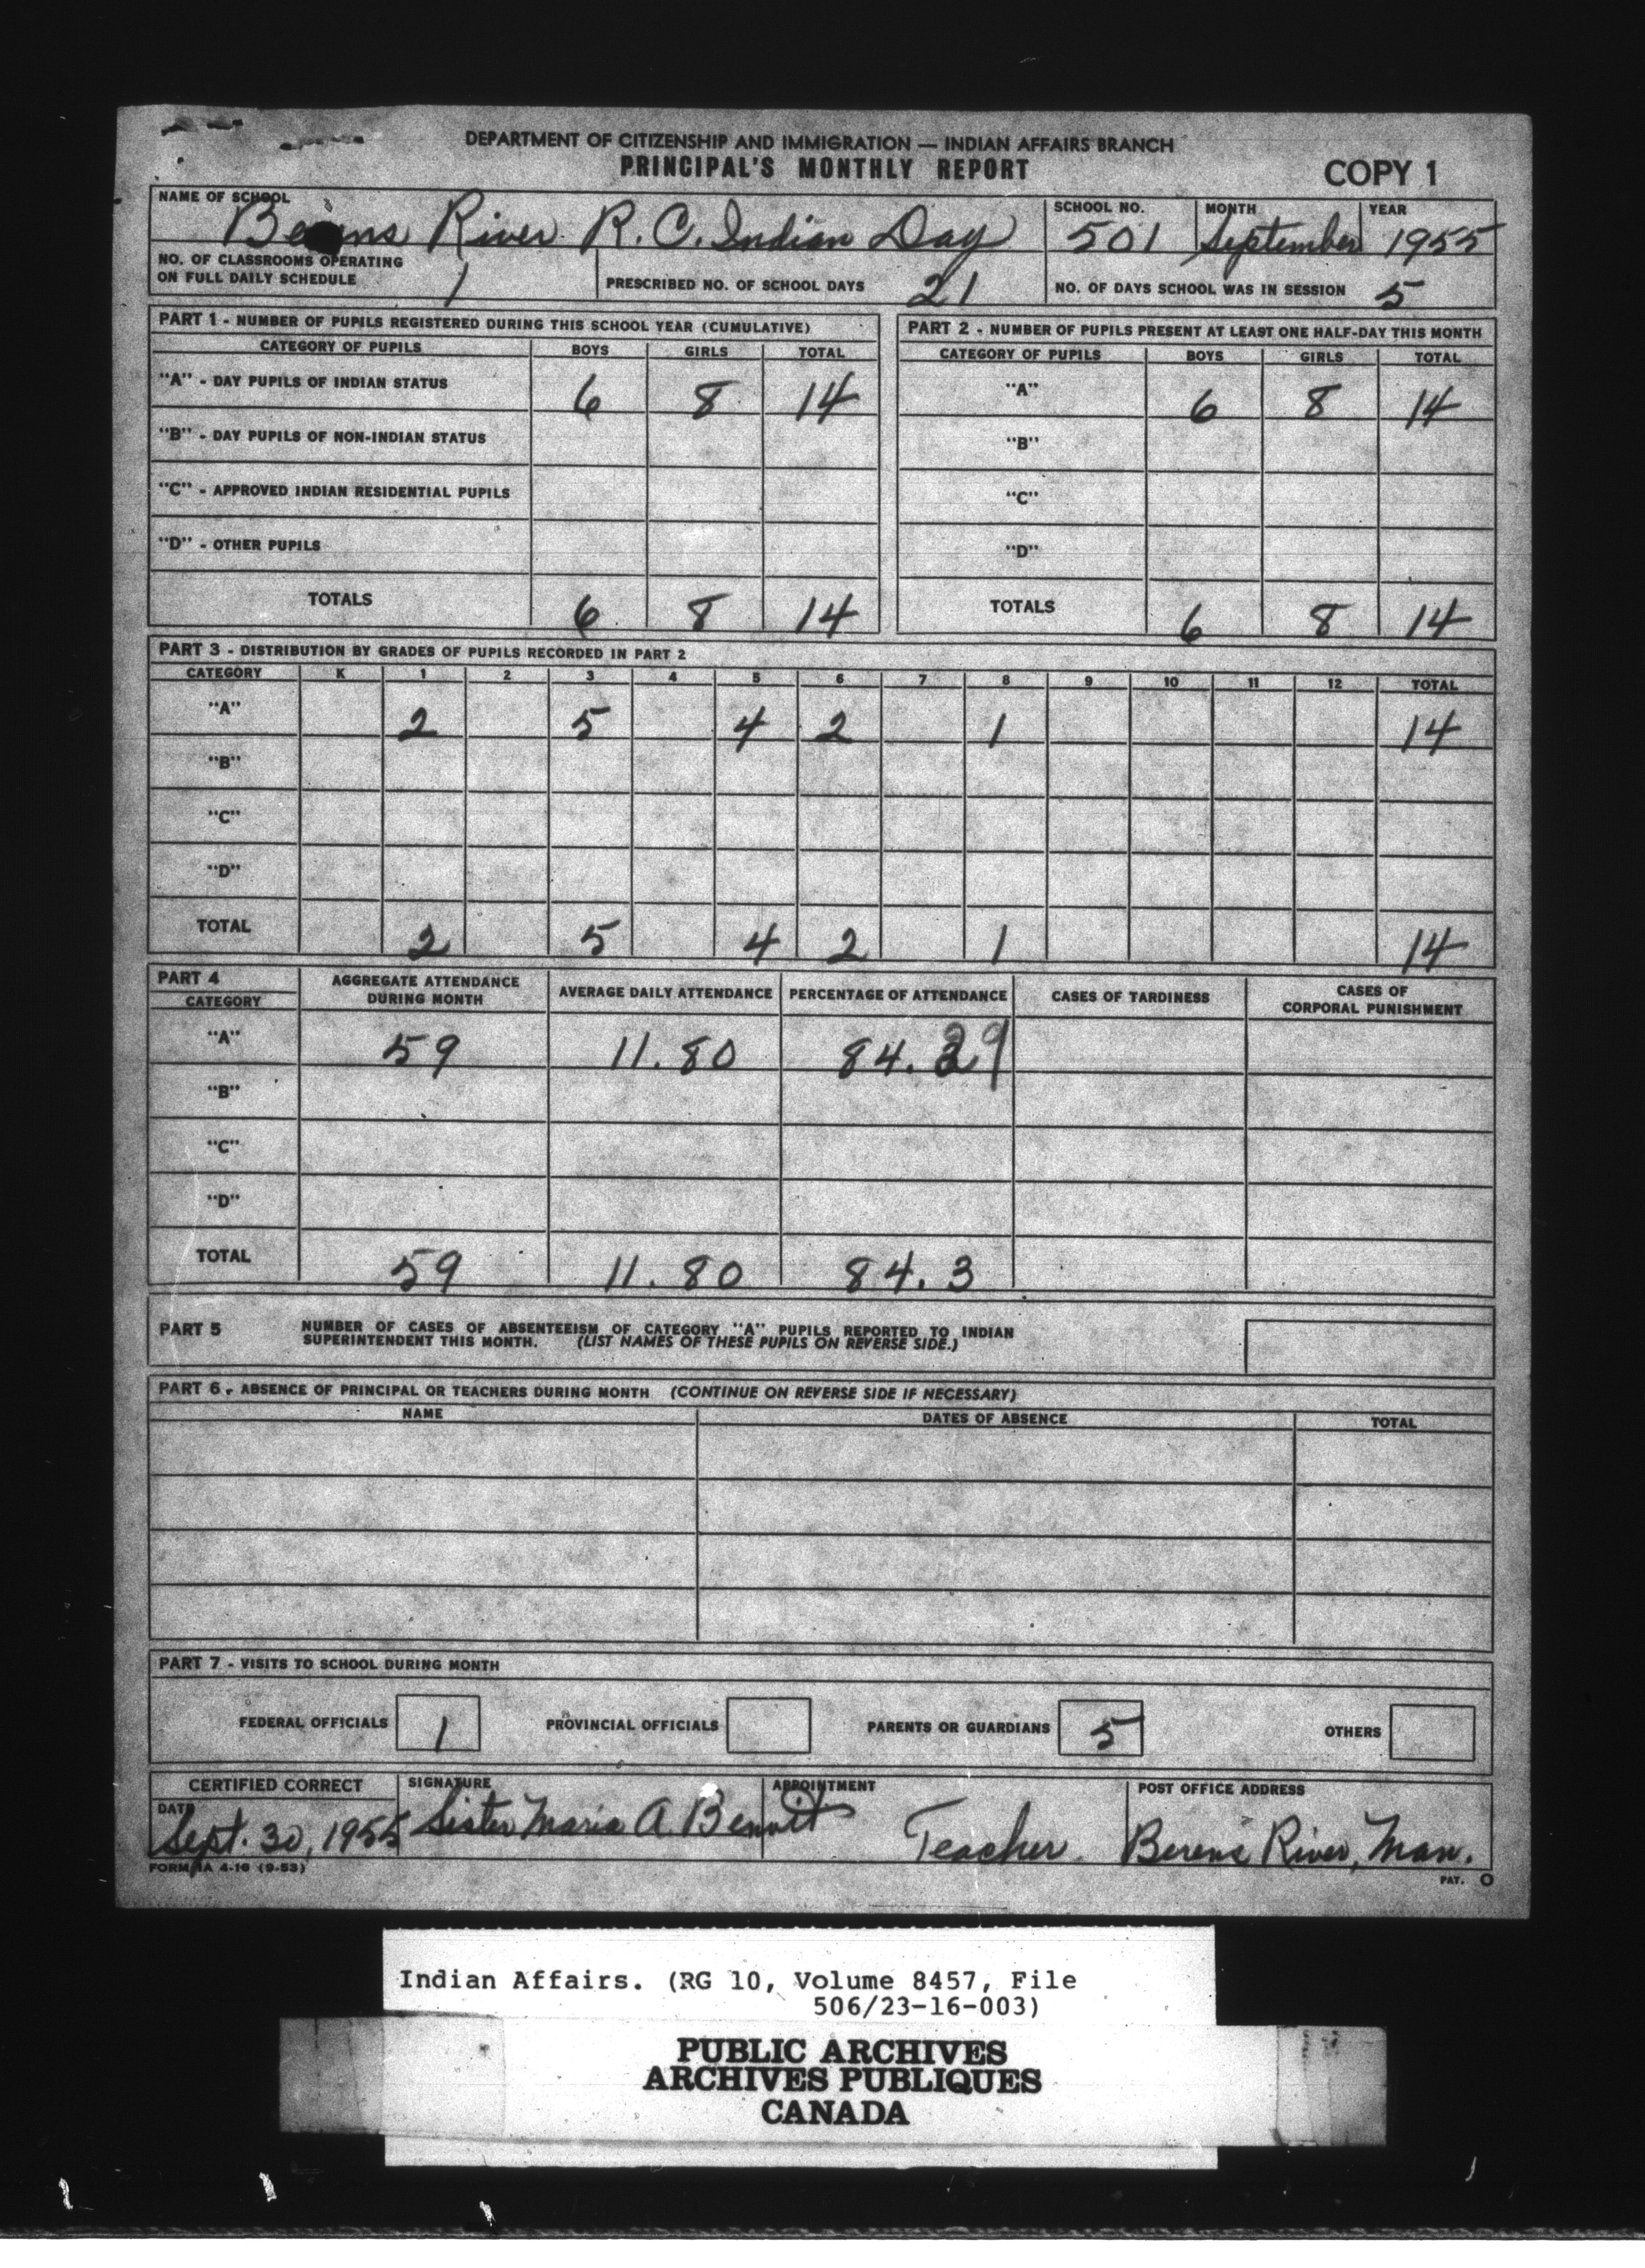 DEPARTMENT OF CITIZENSHIP AND IMMIGRATION — INDIAN AFFAIRS BRANCH
PRINCIPAL'S MONTHLY REPORT
COPY 1
NAME OF SCHOOL SCHOOL NO. MONTH YEAR
Berens River R. C. Indian Day 501 September 1955
NO. OF CLASSROOMS OPERATING
ON FULL DAILY SCHEDULE 1 PRESCRIBED NO. OF SCHOOL DAYS 21 NO. OF DAYS SCHOOL WAS IN SESSION 5
PART 1 - NUMBER OF PUPILS REGISTERED DURING THIS SCHOOL YEAR (CUMULATIVE)
CATEGORY OF PUPILS BOYS GIRLS TOTAL
"A" - DAY PUPILS OF INDIAN STATUS 6 8 14
"B" - DAY PUPILS OF NON-INDIAN STATUS
"C" - APPROVED INDIAN RESIDENTIAL PUPILS
"D" - OTHER PUPILS
TOTALS 6 8 14
PART 2 - NUMBER OF PUPILS PRESENT AT LEAST ONE HALF-DAY THIS MONTH
CATEGORY OF PUPILS BOYS GIRLS TOTAL
"A" 6 8 14
"B"
"C"
"D"
TOTALS 6 8 14
PART 3 - DISTRIBUTION BY GRADES OF PUPILS RECORDED IN PART 2
CATEGORY K 1 2 3 4 5 6 7 8 9 10 11 12 TOTAL
"A" 2 5 4 2 1 14
"B"
"C"
"D"
TOTAL 2 5 4 2 1 14
PART 4
CATEGORY AGGREGATE ATTENDANCE DURING MONTH AVERAGE DAILY ATTENDANCE PERCENTAGE OF ATTENDANCE CASES OF TARDINESS CASES OF CORPORAL PUNISHMENT
"A" 59 11.80 84.29
"B"
"C"
"D"
TOTAL 59 11.80 84.3
PART 5 NUMBER OF CASES OF ABSENTEEISM OF CATEGORY "A" PUPILS REPORTED TO INDIAN
SUPERINTENDENT THIS MONTH. (LIST NAMES OF THESE PUPILS ON REVERSE SIDE.)
PART 6 - ABSENCE OF PRINCIPAL OR TEACHERS DURING MONTH (CONTINUE ON REVERSE SIDE IF NECESSARY)
NAME DATES OF ABSENCE TOTAL
PART 7 - VISITS TO SCHOOL DURING MONTH
FEDERAL OFFICIALS 1 PROVINCIAL OFFICIALS PARENTS OR GUARDIANS 5 OTHERS
CERTIFIED CORRECT SIGNATURE APPOINTMENT POST OFFICE ADDRESS
DATE
Sept. 30, 1955 Sister Maria A Benoit Teacher Berens River, Man.
FORM IA 4-16 (9-53)
PAT. O
Indian Affairs. (RG 10, Volume 8457, File
506/23-16-003)
PUBLIC ARCHIVES
ARCHIVES PUBLIQUES
CANADA